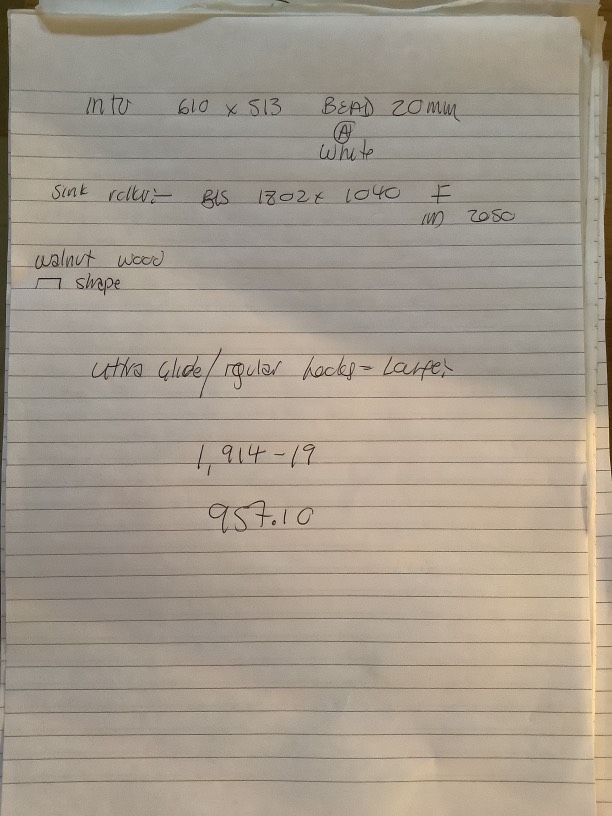 into 610 x 513 BEAD 20mm
A
White
Sink roller:- BLS 1802 x 1040 F
IM 2050
walnut wood
shape
ultra Glide/regular hooks = Larger
1,914-19
957.10